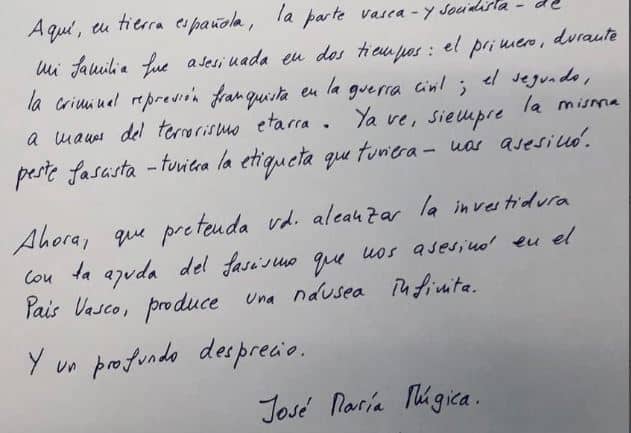 Aquí, en tierra española, la parte vasca - y socialista - de
mi familia fue asesinada en dos tiempos: el primero, durante
la criminal represión franquista en la guerra civil; el segundo,
a manos del terrorismo etarra. Ya ve, siempre la misma
peste fascista - tuviera la etiqueta que tuviera - nos asesinó.
Ahora, que pretenda vd. alcanzar la investidura
con la ayuda del fascismo que nos asesinó en el
País Vasco, produce una náusea infinita.
Y un profundo desprecio.
José María Múgica.